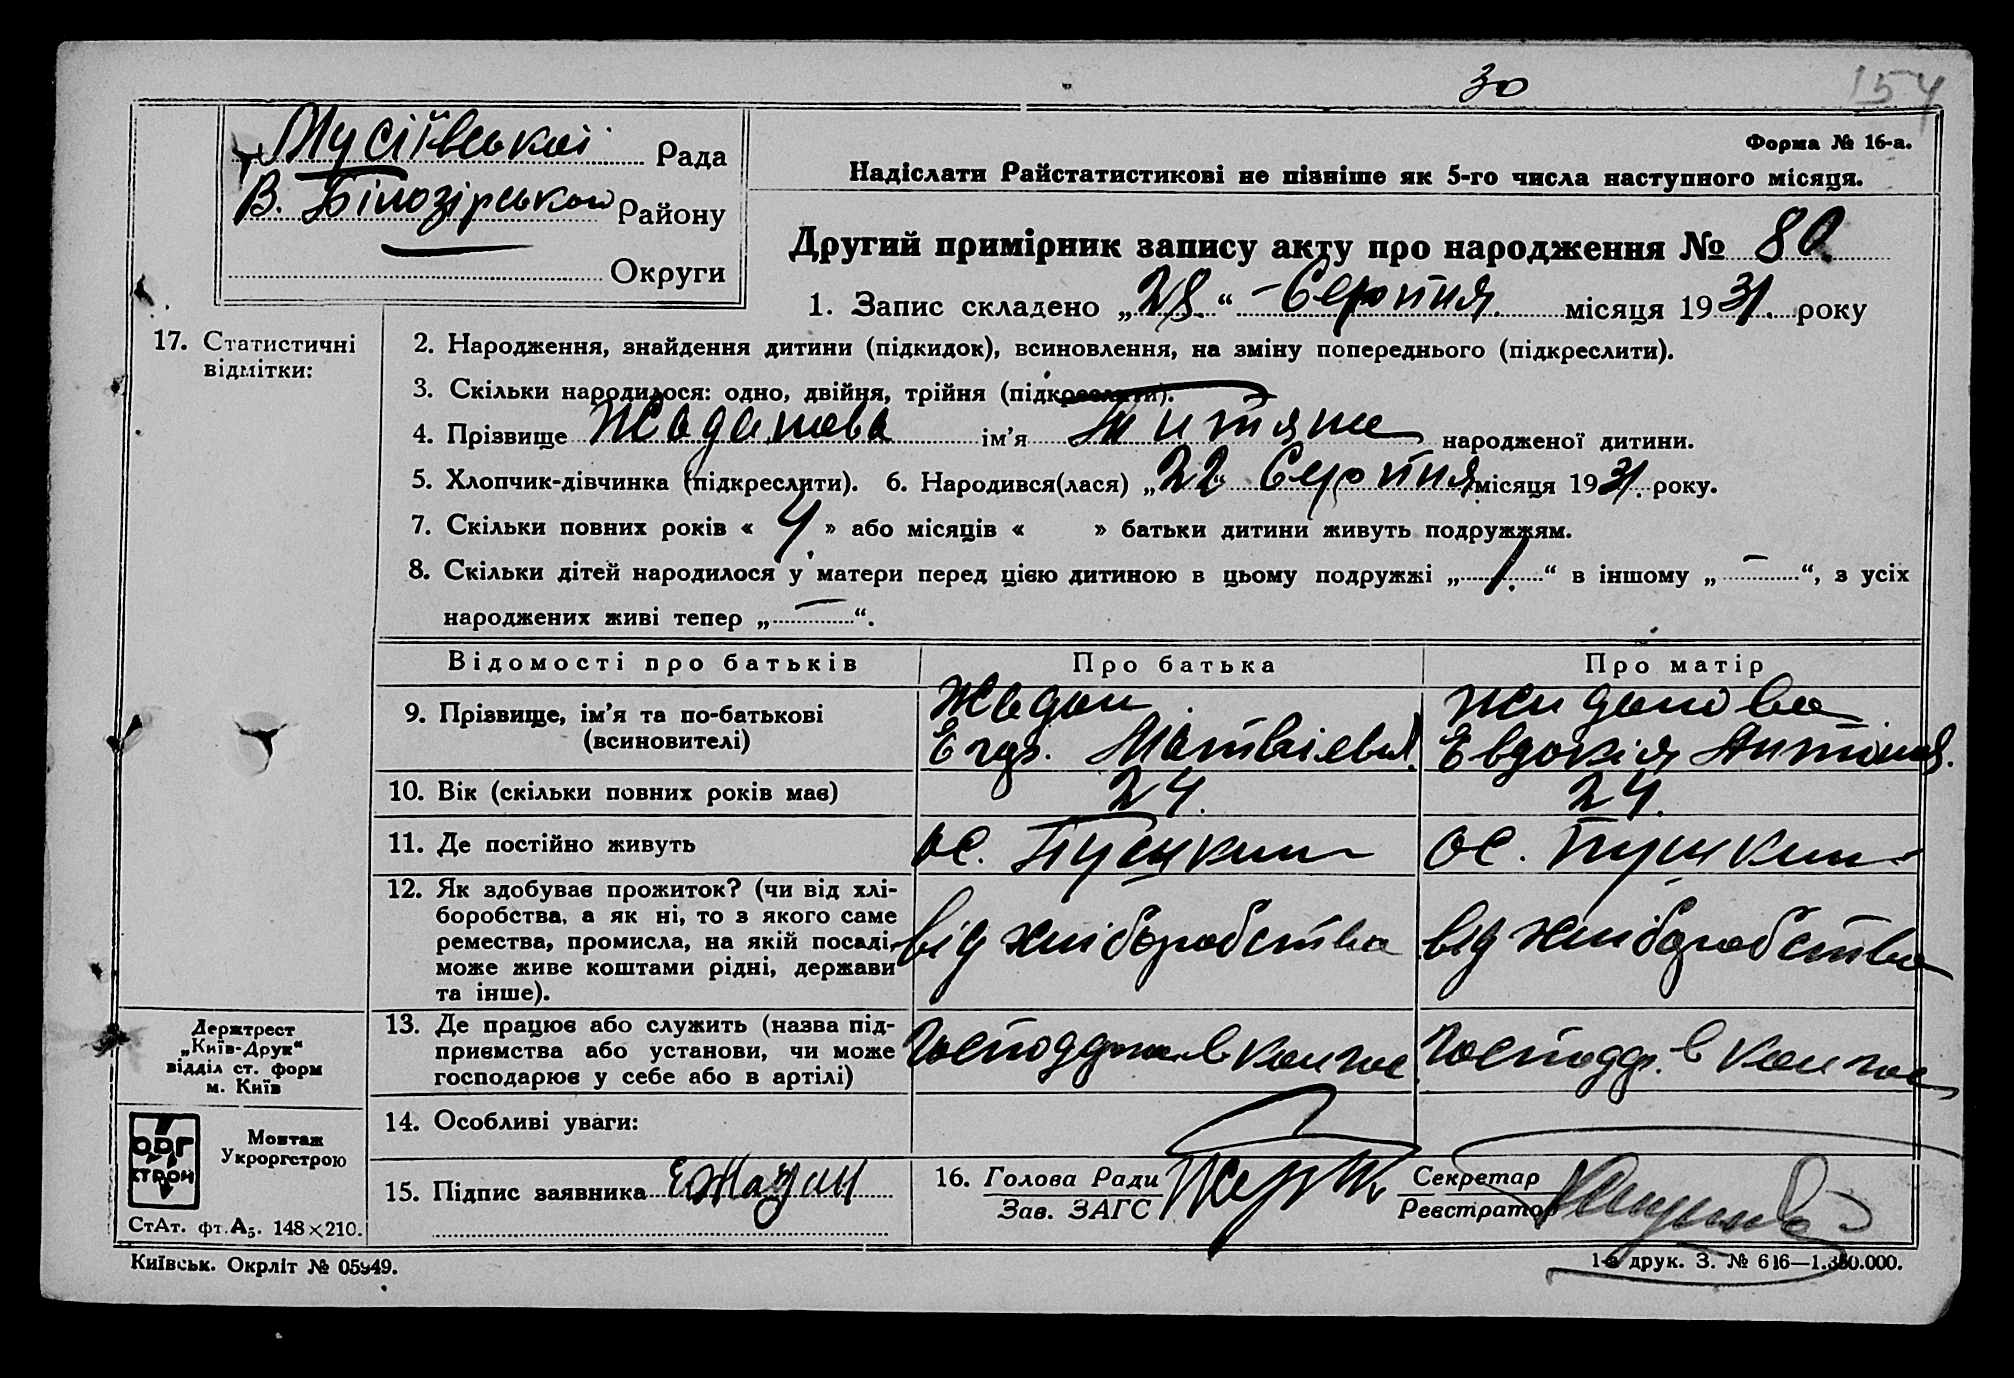 30
154
Мусіївської Рада
В. Білозірського Району
Округи
Форма № 16-а.
Надіслати Райстатистикові не пізніше як 5-го числа наступного місяця.
Другий примірник запису акту про народження № 80.
1. Запис складено „28“ Серпня місяця 1931. року
17. Статистичні
відмітки:
2. Народження, знайдення дитини (підкидок), всиновлення, на зміну попереднього (підкреслити).
3. Скільки народилося: одно, двійня, трійня (підкреслити).
4. Прізвище Жаданова ім’я народженої дитини.
5. Хлопчик-дівчинка (підкреслити). 6. Народився(лася) „22 Серпня місяця 1931. року.
7. Скільки повних років « 4 » або місяців « » батьки дитини живуть подружжям.
8. Скільки дітей народилося у матери перед цією дитиною в цьому подружжі „ 1. “ в іншому „ — “, з усіх
народжених живі тепер „ — “.
Відомості про батьків Про батька Про матір
9. Прізвище, ім’я та по-батькові
(всиновителі)
Жадан
Егор. Матвієвич
Жаданова
Евдокія Антонов.
10. Вік (скільки повних років має) 24. 24.
11. Де постійно живуть ос. Пушкина ос. Пушкина
12. Як здобуває прожиток? (чи від хлі-
боробства, а як ні, то з якого саме
ремества, промисла, на якій посаді,
може живе коштами рідні, держави
та інше).
від хліборобства від хліборобства
13. Де працює або служить (назва під-
приємства або установи, чи може
господарює у себе або в артілі)
в колгос. в колгос
14. Особливі уваги:
15. Підпис заявника ЕЖадан
16. Голова Ради
Зав. ЗАГС
Секретар
Реєстратор
Держтрест
„Київ-Друк“
відділ ст. форм
м. Київ
ОРГ
СТРОЙ
Монтаж
Укроргстрою
СтАт. фт. А₅. 148×210.
Київськ. Окрліт № 05949.
1-а друк. З. № 616—1.350.000.